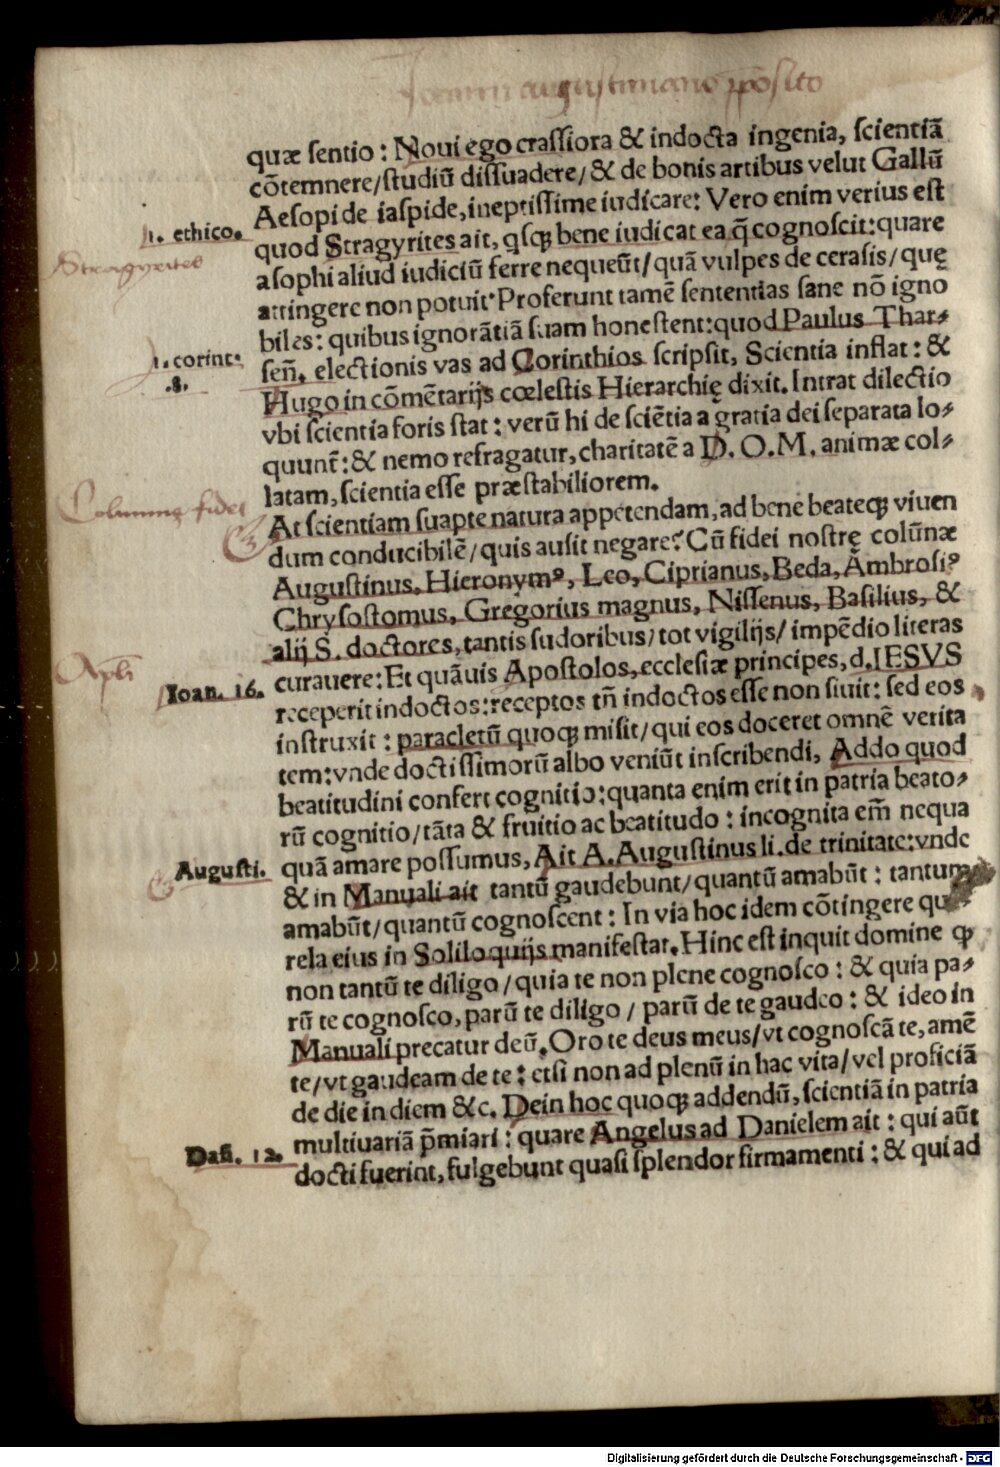 quæ sentio: Noui ego crassiora & indocta ingenia, scientiã
cõtemnere/studiũ dissuadere/& de bonis artibus velut Gallũ
Aesopi de iaspide, ineptissime iudicare: Vero enim verius est
1. ethico.
quod Stragyrites ait, qsqꝫ bene iudicat ea q̃ cognoscit: quare
Stragyrites
asophi aliud iudiciũ ferre nequeũt/quã vulpes de cerasis/quę
attingere non potuit· Proferunt tamẽ sententias sane nõ igno
biles: quibus ignorãtiã suam honestent: quod Paulus Thar⸗
1. corint.
señ. electionis vas ad Corinthios scripsit, Scientia inflat: &
.8.
Hugo in cõmẽtarijs cœlestis Hierarchię dixit. Intrat dilectio
vbi scientia foris stat: verũ hi de sciẽtia a gratia dei separata lo⸗
quunt̃: & nemo refragatur, charitatẽ a D. O. M. animæ col⸗
latam, scientia esse præstabiliorem.
Columnę fidei
At scientiam suapte natura appetendam, ad bene beateqꝫ viuen
dum conducibilẽ/quis ausit negare? Cũ fidei nostrę colũnæ
Augustinus, Hieronymꝰ, Leo, Ciprianus, Beda, Ambrosiꝰ
Chrysostomus, Gregorius magnus, Nissenus, Basilius, &
alij S. doctores, tantis sudoribus/tot vigilijs/impẽdio literas
Apl̃i
curauere: Et quãuis Apostolos, ecclesiæ principes, d. IESVS
Ioan. 16.
receperit indoctos: receptos tñ indoctos esse non siuit: sed eos
instruxit: paracletũ quoqꝫ misit/qui eos doceret omnẽ verita
tem: vnde doctissimorũ albo veniũt inscribendi, Addo quod
beatitudini confert cognitio: quanta enim erit in patria beato⸗
rũ cognitio/tãta & fruitio ac beatitudo: incognita em̃ nequa
Augusti.
quã amare possumus, Ait A. Augustinus li. de trinitate: vnde
& in Manuali ait tantũ gaudebunt/quantũ amabũt: tantum
amabũt/quantũ cognoscent: In via hoc idem cõtingere
rela eius in Soliloquijs manifestat. Hinc est inquit domine ꝙ
non tantũ te diligo/quia te non plene cognosco: & quia pa⸗
rũ te cognosco, parũ te diligo/parũ de te gaudeo: & ideo in
Manuali precatur deũ. Oro te deus meus/vt cognoscã te, amẽ
te/vt gaudeam de te: etsi non ad plenũ in hac vita/vel proficiã
de die in diem &c. Dein hoc quoqꝫ addendũ, scientiã in patria
multiuariã p̃miari: quare Angelus ad Danielem ait: qui aũt
Dañ. 12.
docti fuerint, fulgebunt quasi splendor firmamenti: & qui ad
Digitalisierung gefördert durch die Deutsche Forschungsgemeinschaft - DFG